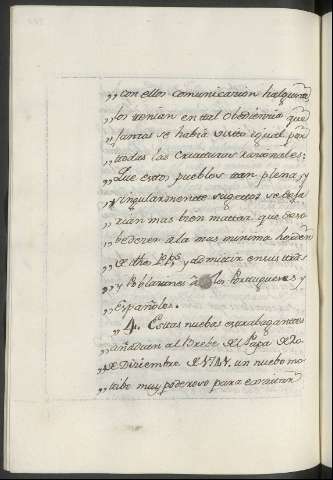 ,, con ellos comunicarion halguna
,, los tenian en tal Obediencia que
,, Jamas se había visto igual por
,, todas las Criaturas razionales;
,, Que estos pueblos tan plena, y
,, singularmente sugetos se deja
,, rian mas bien mattar que deso
,, bedezer a la mas minima horden
,, de dhos PPs y admitir en sus tras
,, y Poblaziones a los Portugueses y
,, Españoles.
,, 4. Estas nuebas extrabagantes
,, añaden al Brebe del Papa de 20
,, de Diziembre de 1741. un nuebo mo
,, tibo muy poderoso para